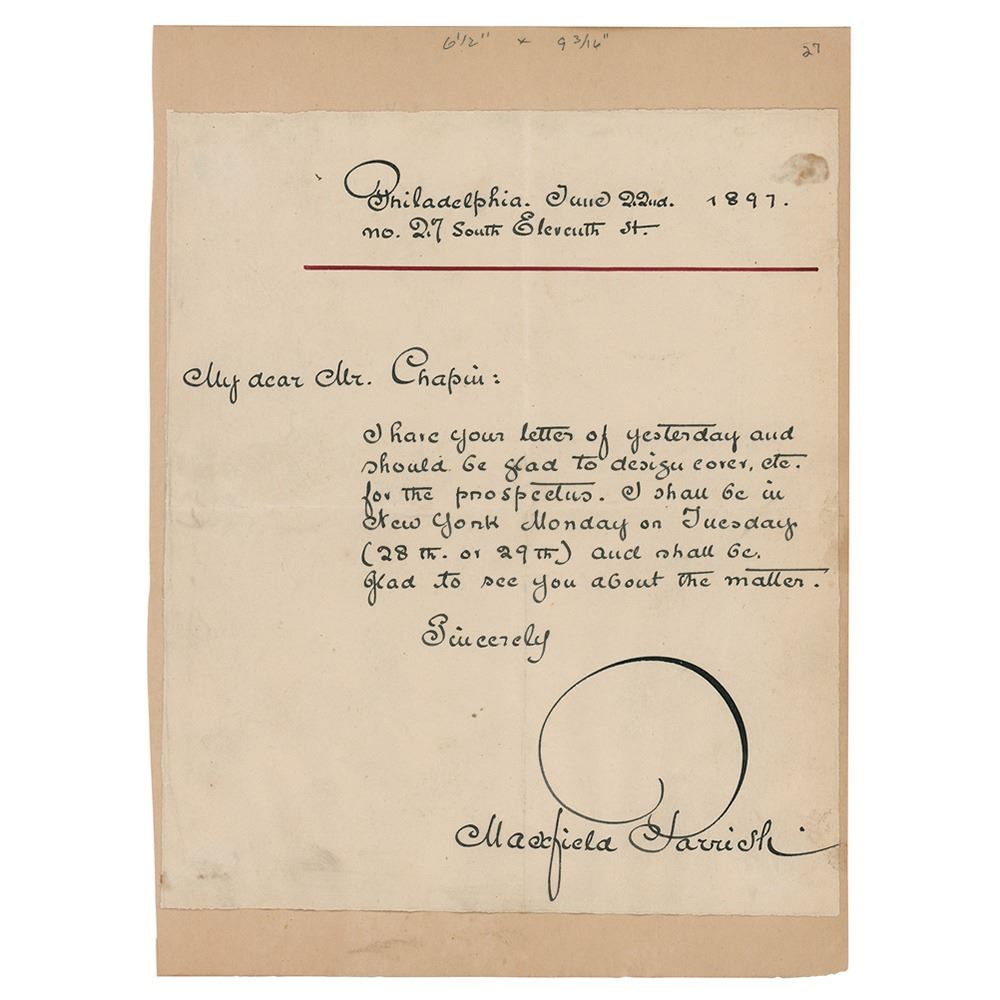 6 1/2" x 9 3/16"
27
Philadelphia. June 22nd. 1897.
no. 27 South Eleventh St.
My dear Mr. Chapin:
I have your letter of yesterday and
should be glad to design cover, etc.
for the prospectus. I shall be in
New York Monday or Tuesday
(28th. or 29th) and shall be
glad to see you about the matter.
Sincerely
Maxfield Parrish.